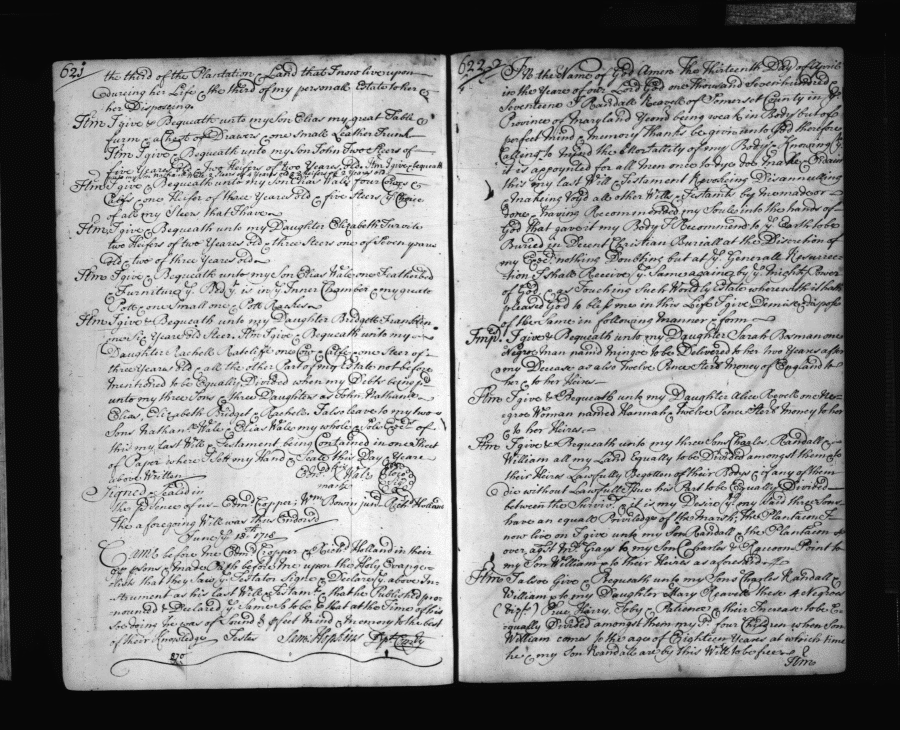 621
the third of the Plantation & Land that I now live upon
during her Life & the third of my personal Estate to her &
her Disposing.
Itm I give & Bequeath unto my Son Elias my great Table &
furm & a Chest of Drawers & one small Leather Trunk
Itm I give & Bequeath unto my Son John Two Steers of
five Years old & two Heifers of two Years old. Itm I give & bequeath
Itm I give & Bequeath unto my Son Elias Wale four Cowes &
Calfs & one Heifer of three Years old & five Steers ye Choice
of all my Steers that I have
Itm I give & Bequeath unto my Daughter Elizabeth
two Heifers of two Years old & three Steers one of Seven years
old & two of three years old
Itm I give & Bequeath unto my Son Elias Wale one Featherbed
& Furniture ye Bed yt is in ye Inner Chamber & my greate
Pott & one Small one & Pott Racks
Itm I give & Bequeath unto my Daughter Bridgett Franklin
one Six Years old Steer. Itm I give & Bequeath unto my
Daughter Rachell Ratclife one Cow & Calfe & one Steer of
three Years old & all the other Part of my Estate not before
mentioned to be Equally Divided when my Debts being pd
unto my three Sons & three Daughters as John Nathan &
Elias, Elizabeth Bridget & Rachell. I also leave to my two
Sons Nathan Wale & Elias Wale my whole
this my last Will & Testament being Contained in one Sheet
of Paper where I Sett my Hand & Seale this Day & Yeare
above Written
Edwd Wale
mark
Signed & Sealed in
the Presence of us Edm Cropper: Wm Bowin junr Richd Holland
The aforegoing Will was thus Endorsd
June ye 18th 1718
Came before me Edmd Cropper & Richd Holland in their
pr psons & made Oath before me upon the Holy Evange-
lists that they Saw ye Testator Signe & Declare ye above In-
strument as his last Will & Testamt & that he Published pro-
nounced & Declard ye Same to be & that at the Time of his
so doing he was of Sound & pfect Mind & Memory to the best
of their Knowledge Testes Saml Hopkins Dpt Comry
622
In the Name of God Amen the Thirteenth Day of Aprill
in the Year of our Lord God one thousand Seven hundred &
Seventeene I Randall Revell of Somerset County in ye
Province of Maryland Gent being weak in Body but of
perfect mind & Memory thanks be given unto God therefore
Calling to Mind the Mortallity of my Body & Knowing yt
it is appointed for all men once to dye doe make & Ordain
this my last Will & Testament Revokeing Disannulling
& makeing Void all other Wills & Testamts by me made or
done & having Recommended my Soule into the hands of
God that gave it my Body I Recommend to ye Earth to be
Buried in Decent Christian Buriall at the Discretion of
my Exr nothing Doubting but at ye Generall Resurrec-
tion I shall Receive ye Same againe by ye Mighty Power
of God & as Touching Such Worldly Estate wherewith it hath
pleased God to bless me in this Life I give Demise & dispose
of the Same in following Manner & form
Impr. I give & Bequeath unto my Daughter Sarah Bosman one
Negroe man named Mingoe to be Delivered to her two Years after
my Decease as also Twelve Pence Sterd Money of England to
her & to her Heirs
Itm I give & Bequeath unto my Daughter Alice Revell one Ne-
groe Woman named Hannah & Twelve Pence Sterd Money to her
& to her Heires.
Itm I give & Bequeath unto my three Sons Charles, Randall &
William all my Land Equally to be Divided amongst them & to
their Heires Lawfully Begotten of their Bodys & if any of them
die without Lawfull Issue his Part to be Equally Divided
between the Survivrs it is my Desire yt my said three Sons
have an equall Priviledge of the Marsh, the Plantacon I
now live on I give unto my Son Randall the Plantacon
over agst Mr Grays to my Son Charles & Racoon Point to
my Son William & to their Heires as aforesd
Itm I alsoe Give & Bequeath unto my Sons Charles Randall &
William & to my Daughter Mary Reavell these 4 Negroes
(Vizt) Prue Harry, Toby & Patience & their Increase to be E-
qually Divided amongst them my sd four Children when Son
William comes to the age of Eighteen Yeares at which time
he & my Son Randall are by this Will to be free
Itm